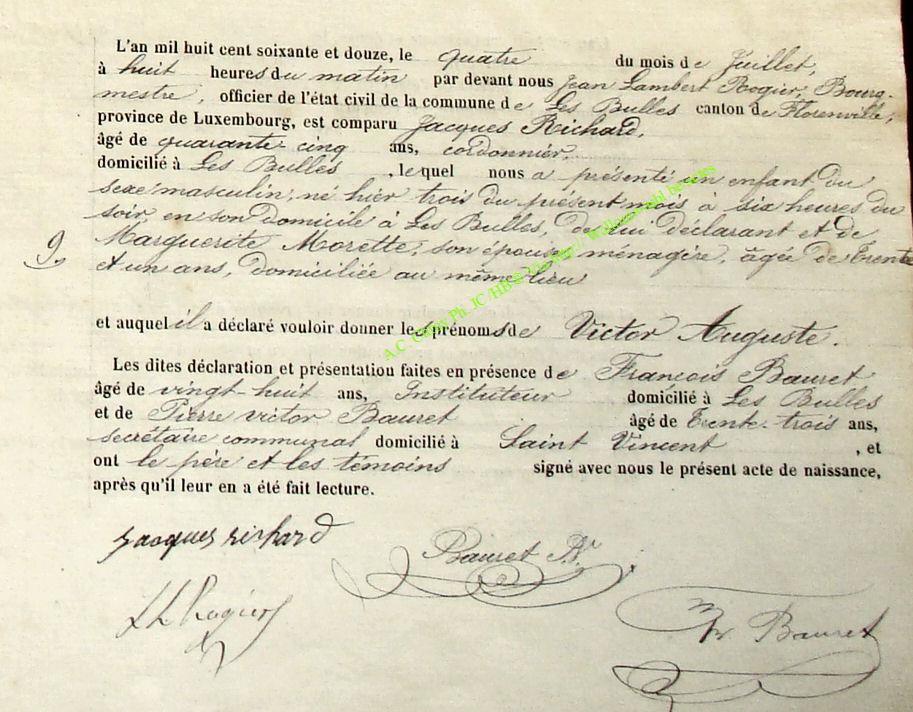 L'an mil huit cent soixante et douze, le quatre du mois de Juillet,
à huit heures du matin par devant nous Jean Lambert Rogier, Bourg-
mestre, officier de l'état civil de la commune de Les Bulles canton de Florenville,
province de Luxembourg, est comparu Jacques Richard,
âgé de quarante-cinq ans, cordonnier,
domicilié à Les Bulles, lequel nous a présenté un enfant du
sexe masculin, né hier trois du présent mois à six heures du
soir, en son domicile à Les Bulles, de lui déclarant et de
9 Marguerite Morette, son épouse, ménagère, âgée de trente
et un ans, domiciliée au même lieu
et auquel il a déclaré vouloir donner les prénoms de Victor Auguste.
Les dites déclaration et présentation faites en présence de François Bauret
âgé de vingt-huit ans, Instituteur domicilié à Les Bulles
et de Pierre victor Bauret âgé de trente-trois ans,
secrétaire communal domicilié à Saint Vincent, et
ont le père et les témoins signé avec nous le présent acte de naissance,
après qu'il leur en a été fait lecture.
jacques richard
Bauret
Rogier
Bauret